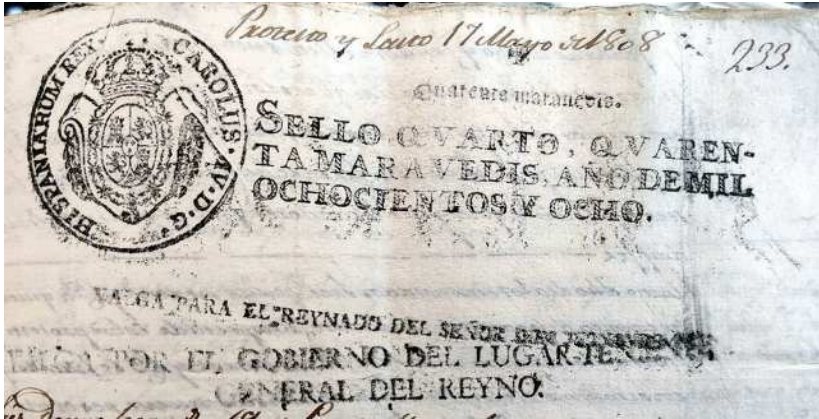 17 Mayo de 1808
233.
HISPANIARUM REX. CAROLUS. IV. D. G.
Quarenta maravedis.
SELLO QVARTO, QVAREN-
TA MARAVEDIS, AÑO DE MIL
OCHOCIENTOS Y OCHO.
VALGA PARA EL REYNADO DEL SEÑOR DON
VALGA POR EL GOBIERNO DEL LUGAR-TENIENTE
GENERAL DEL REYNO.